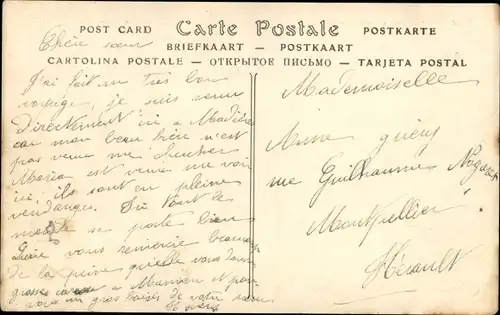 POST CARD Carte Postale POSTKARTE
BRIEFKAART — POSTKAART
CARTOLINA POSTALE — ОТКРЫТОЕ ПИСЬМО — TARJETA POSTAL
Chère sœur
J'ai fait un très bon
voyage, je suis venue
directement ici a
car mon beau frère n'est
pas venu me chercher
Maria est venue me voir
ici, ils sont en pleine
vendanges. Ici tout le
monde se porte bien
vous remercie beaucoup
de la peine qu'elle vous donne
grosses a Maman et pour
vous un gros baiser de votre sœur
Mademoiselle
rue Guilhaume Nogaret
Montpellier
Hérault